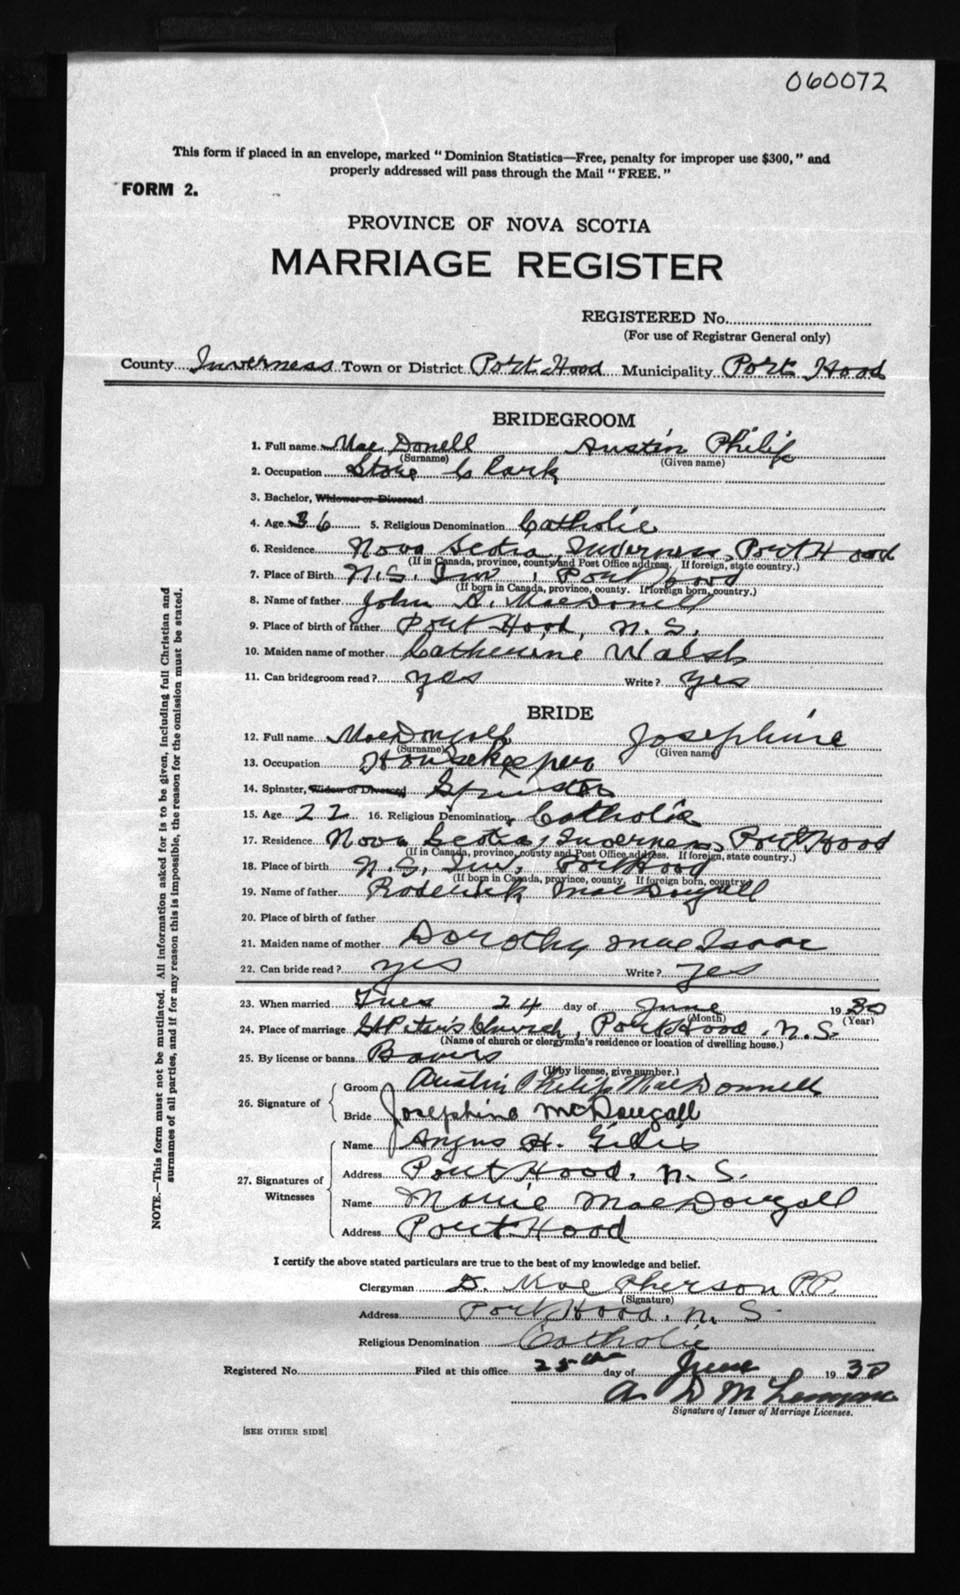 060072
This form if placed in an envelope, marked "Dominion Statistics—Free, penalty for improper use $300," and
properly addressed will pass through the Mail "FREE."
FORM 2.
PROVINCE OF NOVA SCOTIA
MARRIAGE REGISTER
REGISTERED No.
(For use of Registrar General only)
County Inverness Town or District Port Hood Municipality Port Hood
BRIDEGROOM
1. Full name MacDonell Austin Philip
(Surname) (Given name)
2. Occupation Store Clark
3. Bachelor, Widower or Divorced
4. Age 36 5. Religious Denomination Catholic
6. Residence Nova Scotia, Inverness, Port Hood
(If in Canada, province, county and Post Office address. If foreign, state country.)
7. Place of Birth N.S. Inv, Port Hood
(If born in Canada, province, county. If foreign born, country.)
8. Name of father John A. MacDonell
9. Place of birth of father Port Hood, N.S.
10. Maiden name of mother Catherine Walsh
11. Can bridegroom read? yes Write? yes
BRIDE
12. Full name MacDougall Josephine
(Surname) (Given name)
13. Occupation Housekeeper
14. Spinster, Widow or Divorced Spinster
15. Age 22 16. Religious Denomination Catholic
17. Residence Nova Scotia, Inverness, Port Hood
(If in Canada, province, county and Post Office address. If foreign, state country.)
18. Place of birth N.S. Inv, Port Hood
(If born in Canada, province, county. If foreign born, country.)
19. Name of father Roderick MacDougall
20. Place of birth of father
21. Maiden name of mother Dorothy MacIsaac
22. Can bride read? yes Write? yes
23. When married Tues 24 day of June 1930
(Month) (Year)
24. Place of marriage St Peter's Church, Port Hood, N.S.
(Name of church or clergyman's residence or location of dwelling house.)
25. By license or banns Banns
(If by license, give number.)
26. Signature of Groom Austin Philip MacDonnell
Bride Josephine McDougall
27. Signatures of Witnesses Name Angus H. Gillis
Address Port Hood, N.S.
Name MacDougall
Address Port Hood
I certify the above stated particulars are true to the best of my knowledge and belief.
Clergyman D. MacPherson P.P.
(Signature)
Address Port Hood, N.S.
Religious Denomination Catholic
Registered No. Filed at this office 25th day of June 1930
A. D. M
Signature of Issuer of Marriage Licenses.
[SEE OTHER SIDE]
NOTE.—This form must not be mutilated. All information asked for is to be given, including full Christian and
surnames of all parties, and if for any reason this is impossible, the reason for the omission must be stated.